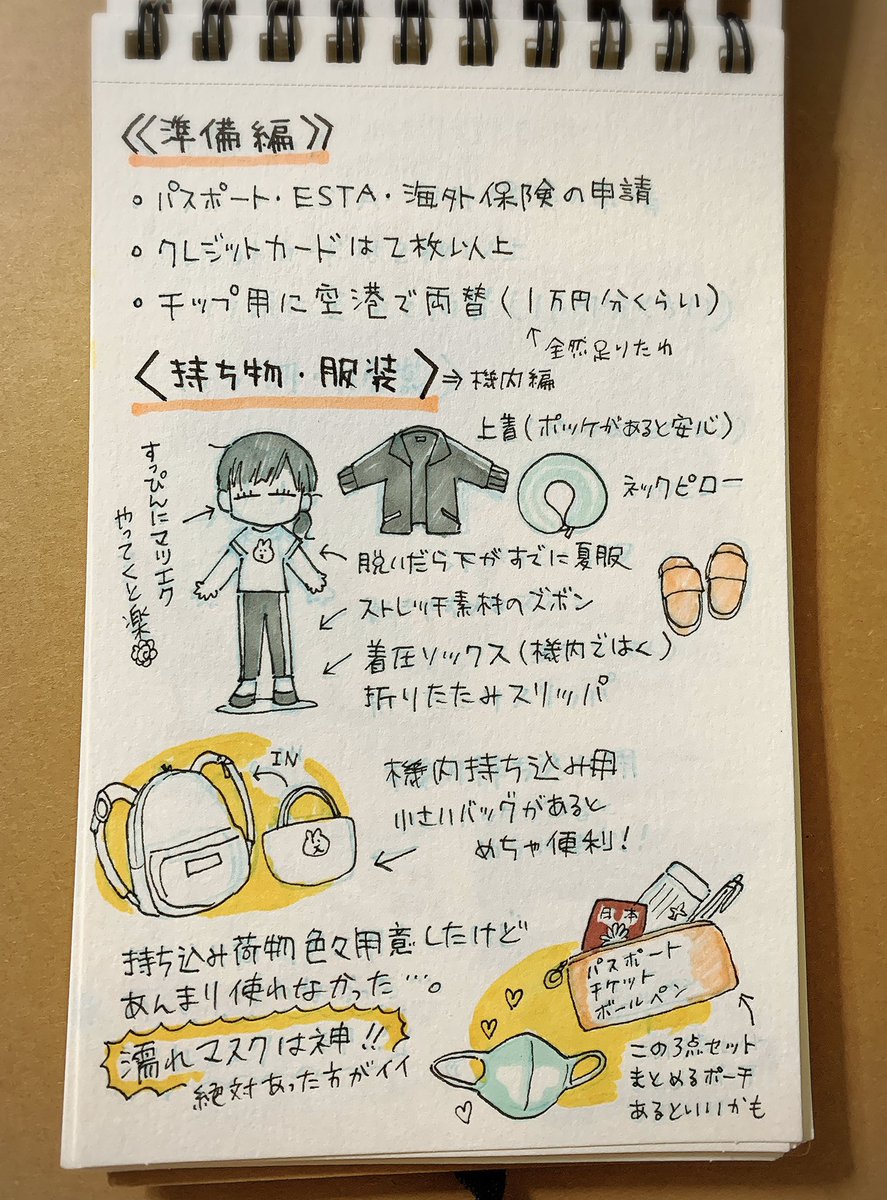 《準備編》
・パスポート・ESTA・海外保険の申請
・クレジットカードは2枚以上
・チップ用に空港で両替(1万円分くらい)
↑全然足りたわ
〈持ち物・服装〉⇒機内編
上着(ポッケがあると安心)
ネックピロー
すっぴんにマツエク
やってくと楽
脱いだら下がすでに夏服
ストレッチ素材のズボン
着圧ソックス(機内ではく)
折りたたみスリッパ
IN
機内持ち込み用
小さいバッグがあると
めちゃ便利!
持ち込み荷物色々用意したけど
あんまり使わなかった…。
濡れマスクは神!!
絶対あった方がイイ
日本
パスポート
チケット
ボールペン
この3点セット
まとめるポーチ
あるといいかも